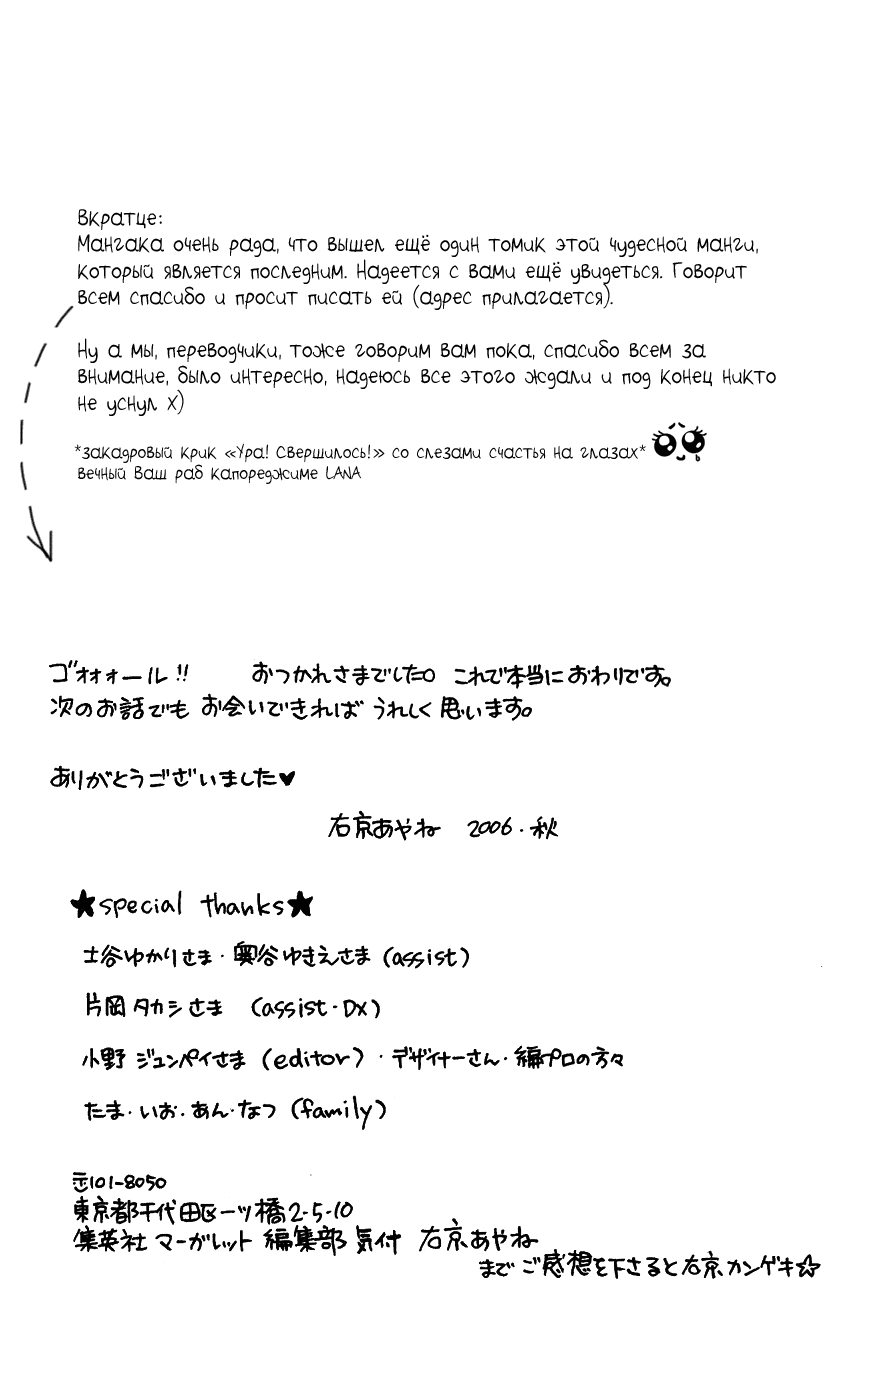 Вкратце:
Мангака очень рада, что вышел ещё один томик этой чудесной манги,
который является последним. Надеется с вами ещё увидеться. Говорит
всем спасибо и просит писать ей (адрес прилагается).
Ну а мы, переводчики, тоже говорим вам пока, спасибо всем за
внимание, было интересно, надеюсь все этого ждали и под конец никто
не уснул X)
*закадровый крик «Ура! Свершилось!» со слезами счастья на глазах*
вечный ваш раб капореджиме LANA
ゴォォォール!! おつかれさまでした。これで本当におわりです。
次のお話でも お会いできれば うれしく思います。
ありがとうございました♥
右京あやね 2006・秋
★special thanks★
土谷ゆかりさま・奥谷ゆきえさま (assist)
片岡タカシさま (assist・DX)
小野ジュンペイさま (editor)・デザイナーさん・編プロの方々
たま・いお・あん・なつ (family)
〒101-8050
東京都千代田区一ツ橋2-5-10
集英社 マーガレット 編集部 気付 右京あやね
まで ご感想を下さると右京カンゲキ☆